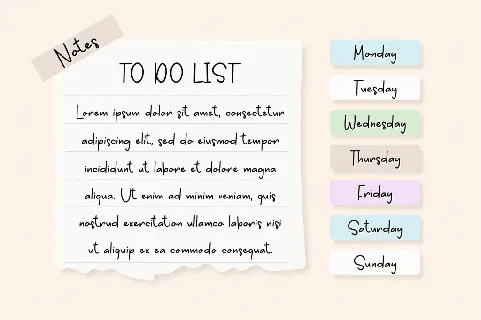 Notes
TO DO LIST
Lorem ipsum dolor sit amet, consectetur
adipiscing elit, sed do eiusmod tempor
incididunt ut labore et dolore magna
aliqua. Ut enim ad minim veniam, quis
nostrud exercitation ullamco laboris nisi
ut aliquip ex ea commodo consequat.
Monday
Tuesday
Wednesday
Thursday
Friday
Saturday
Sunday